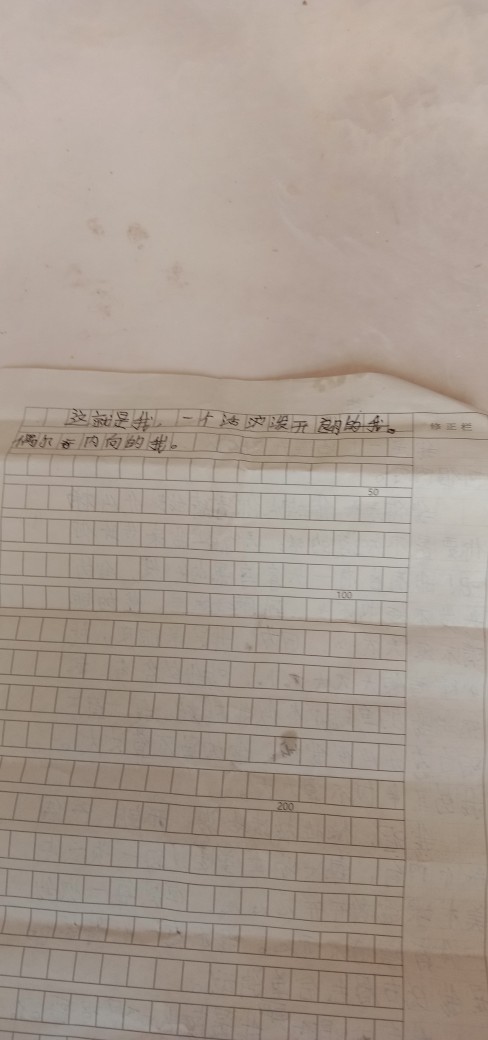 这就是我,一个活泼开朗的我。
修正栏
偶尔内向的我。
50
100
200